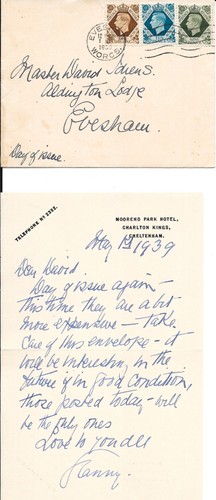 EVESHAM
WORCS
Master David Idiens.
Aldington Lodge
Evesham.
Day of issue.
TELEPHONE Nº 2352.
MOOREND PARK HOTEL,
CHARLTON KINGS,
CHELTENHAM.
May 1st 1939
Dear David.
Day of issue again -
this time they are a bit
more expensive - take
care of this envelope - it
will be interesting in the
future if in good condition,
those posted today - will
be the only ones
Love to you all